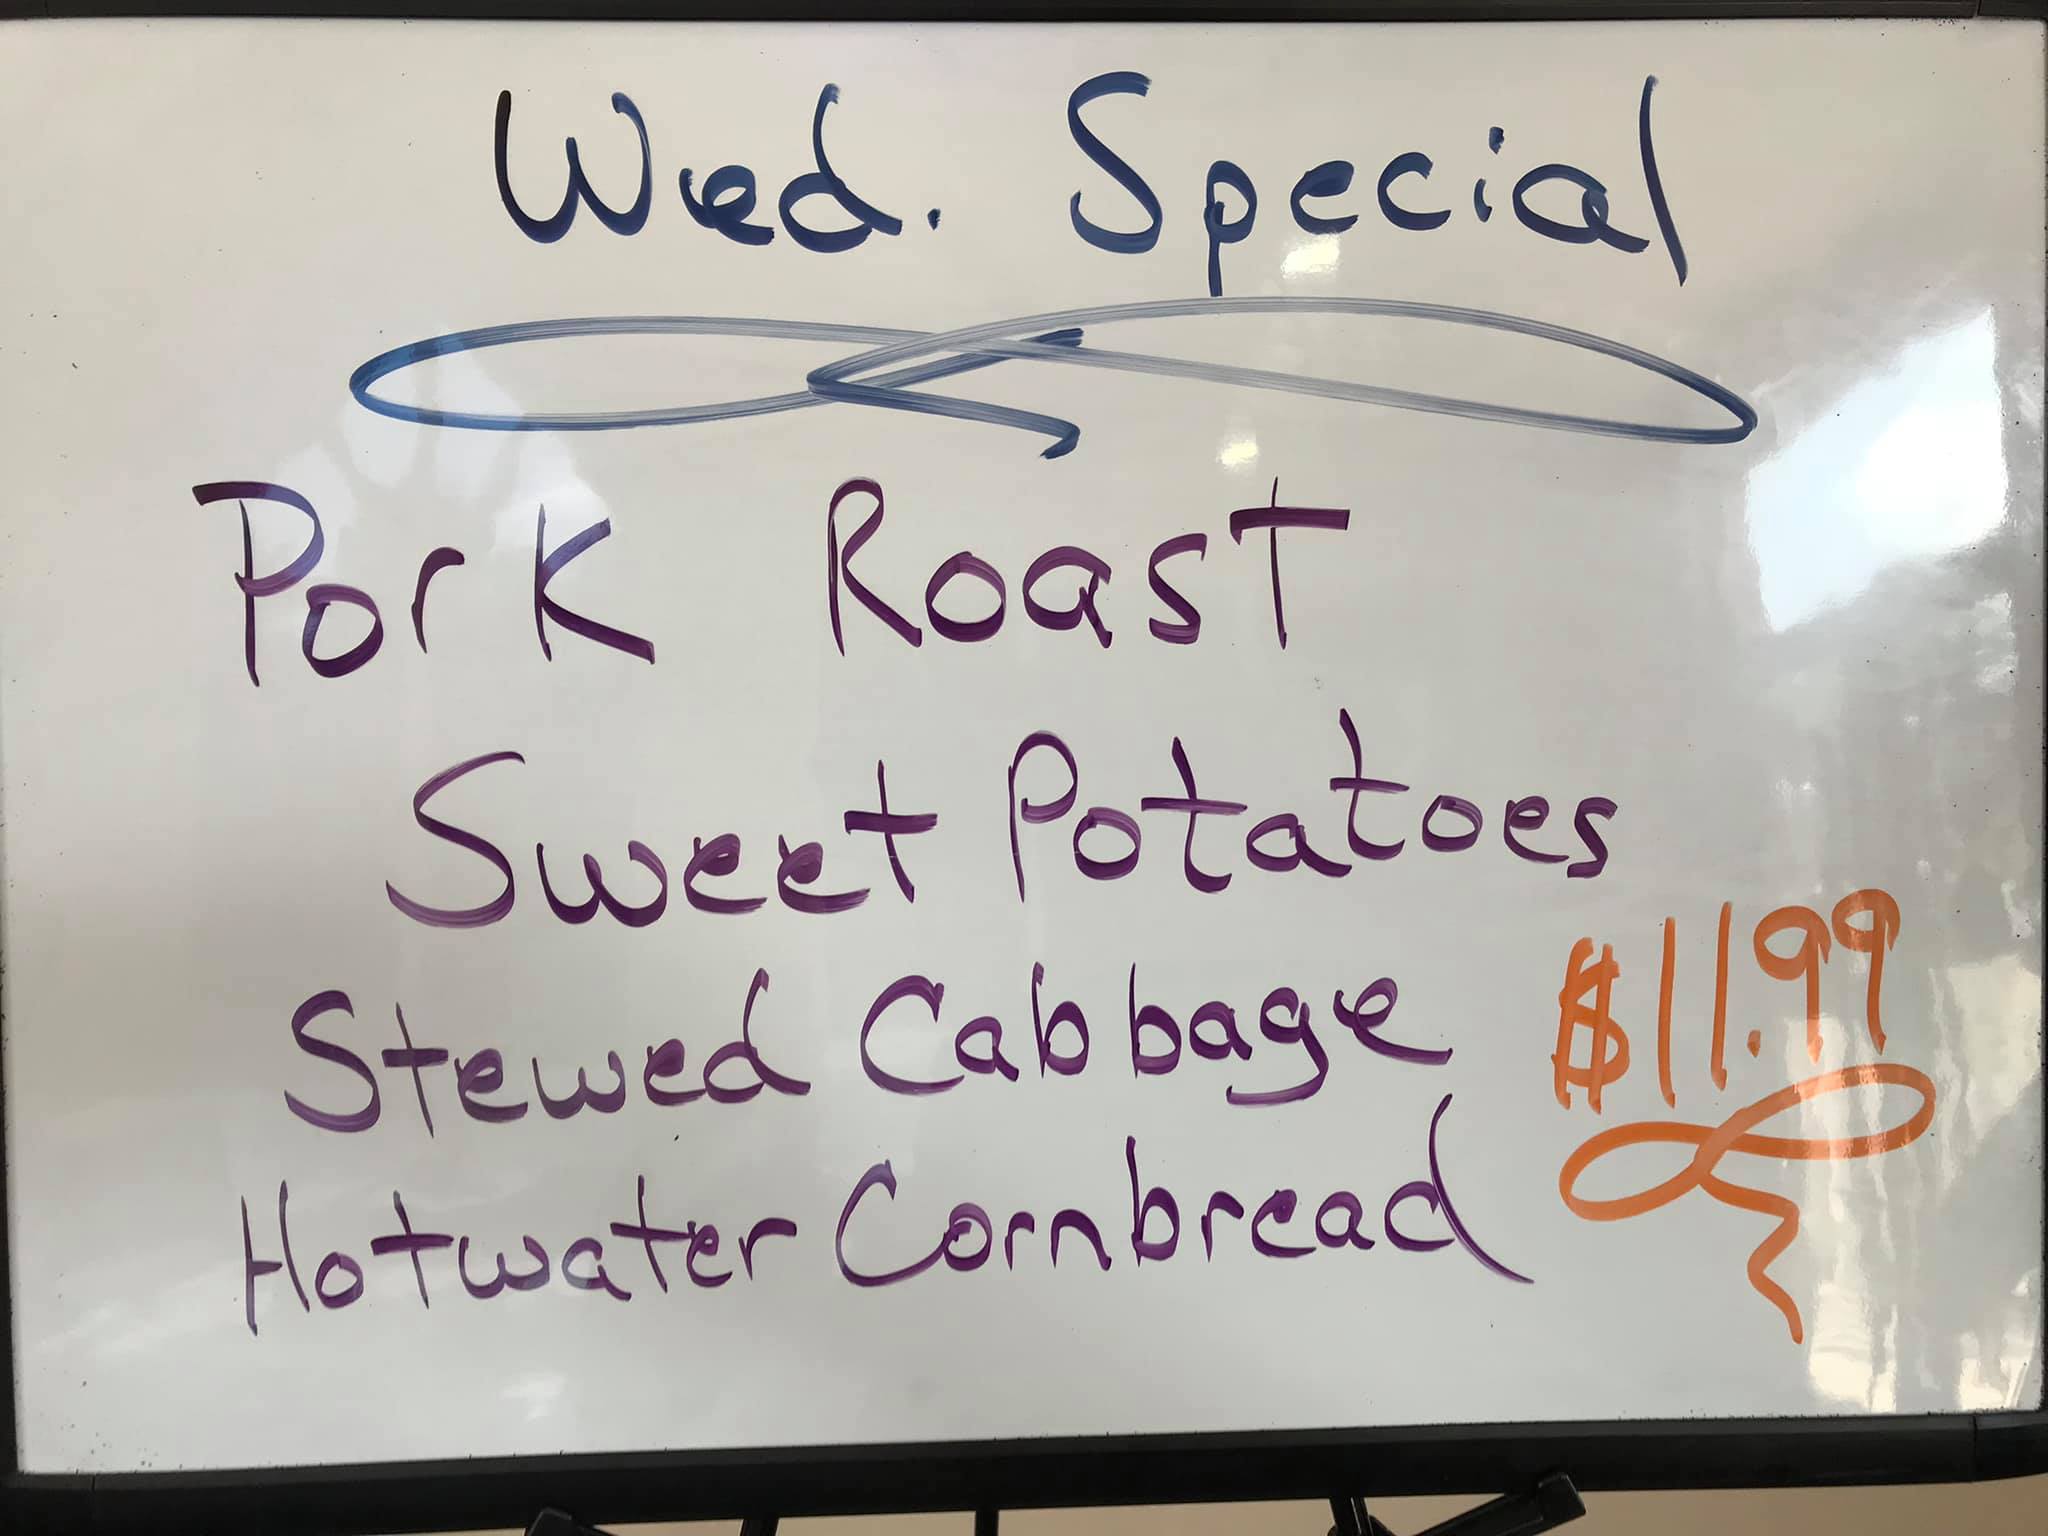 Wed. Special
Pork Roast
Sweet Potatoes
Stewed Cabbage
$11.99
Hotwater Cornbread